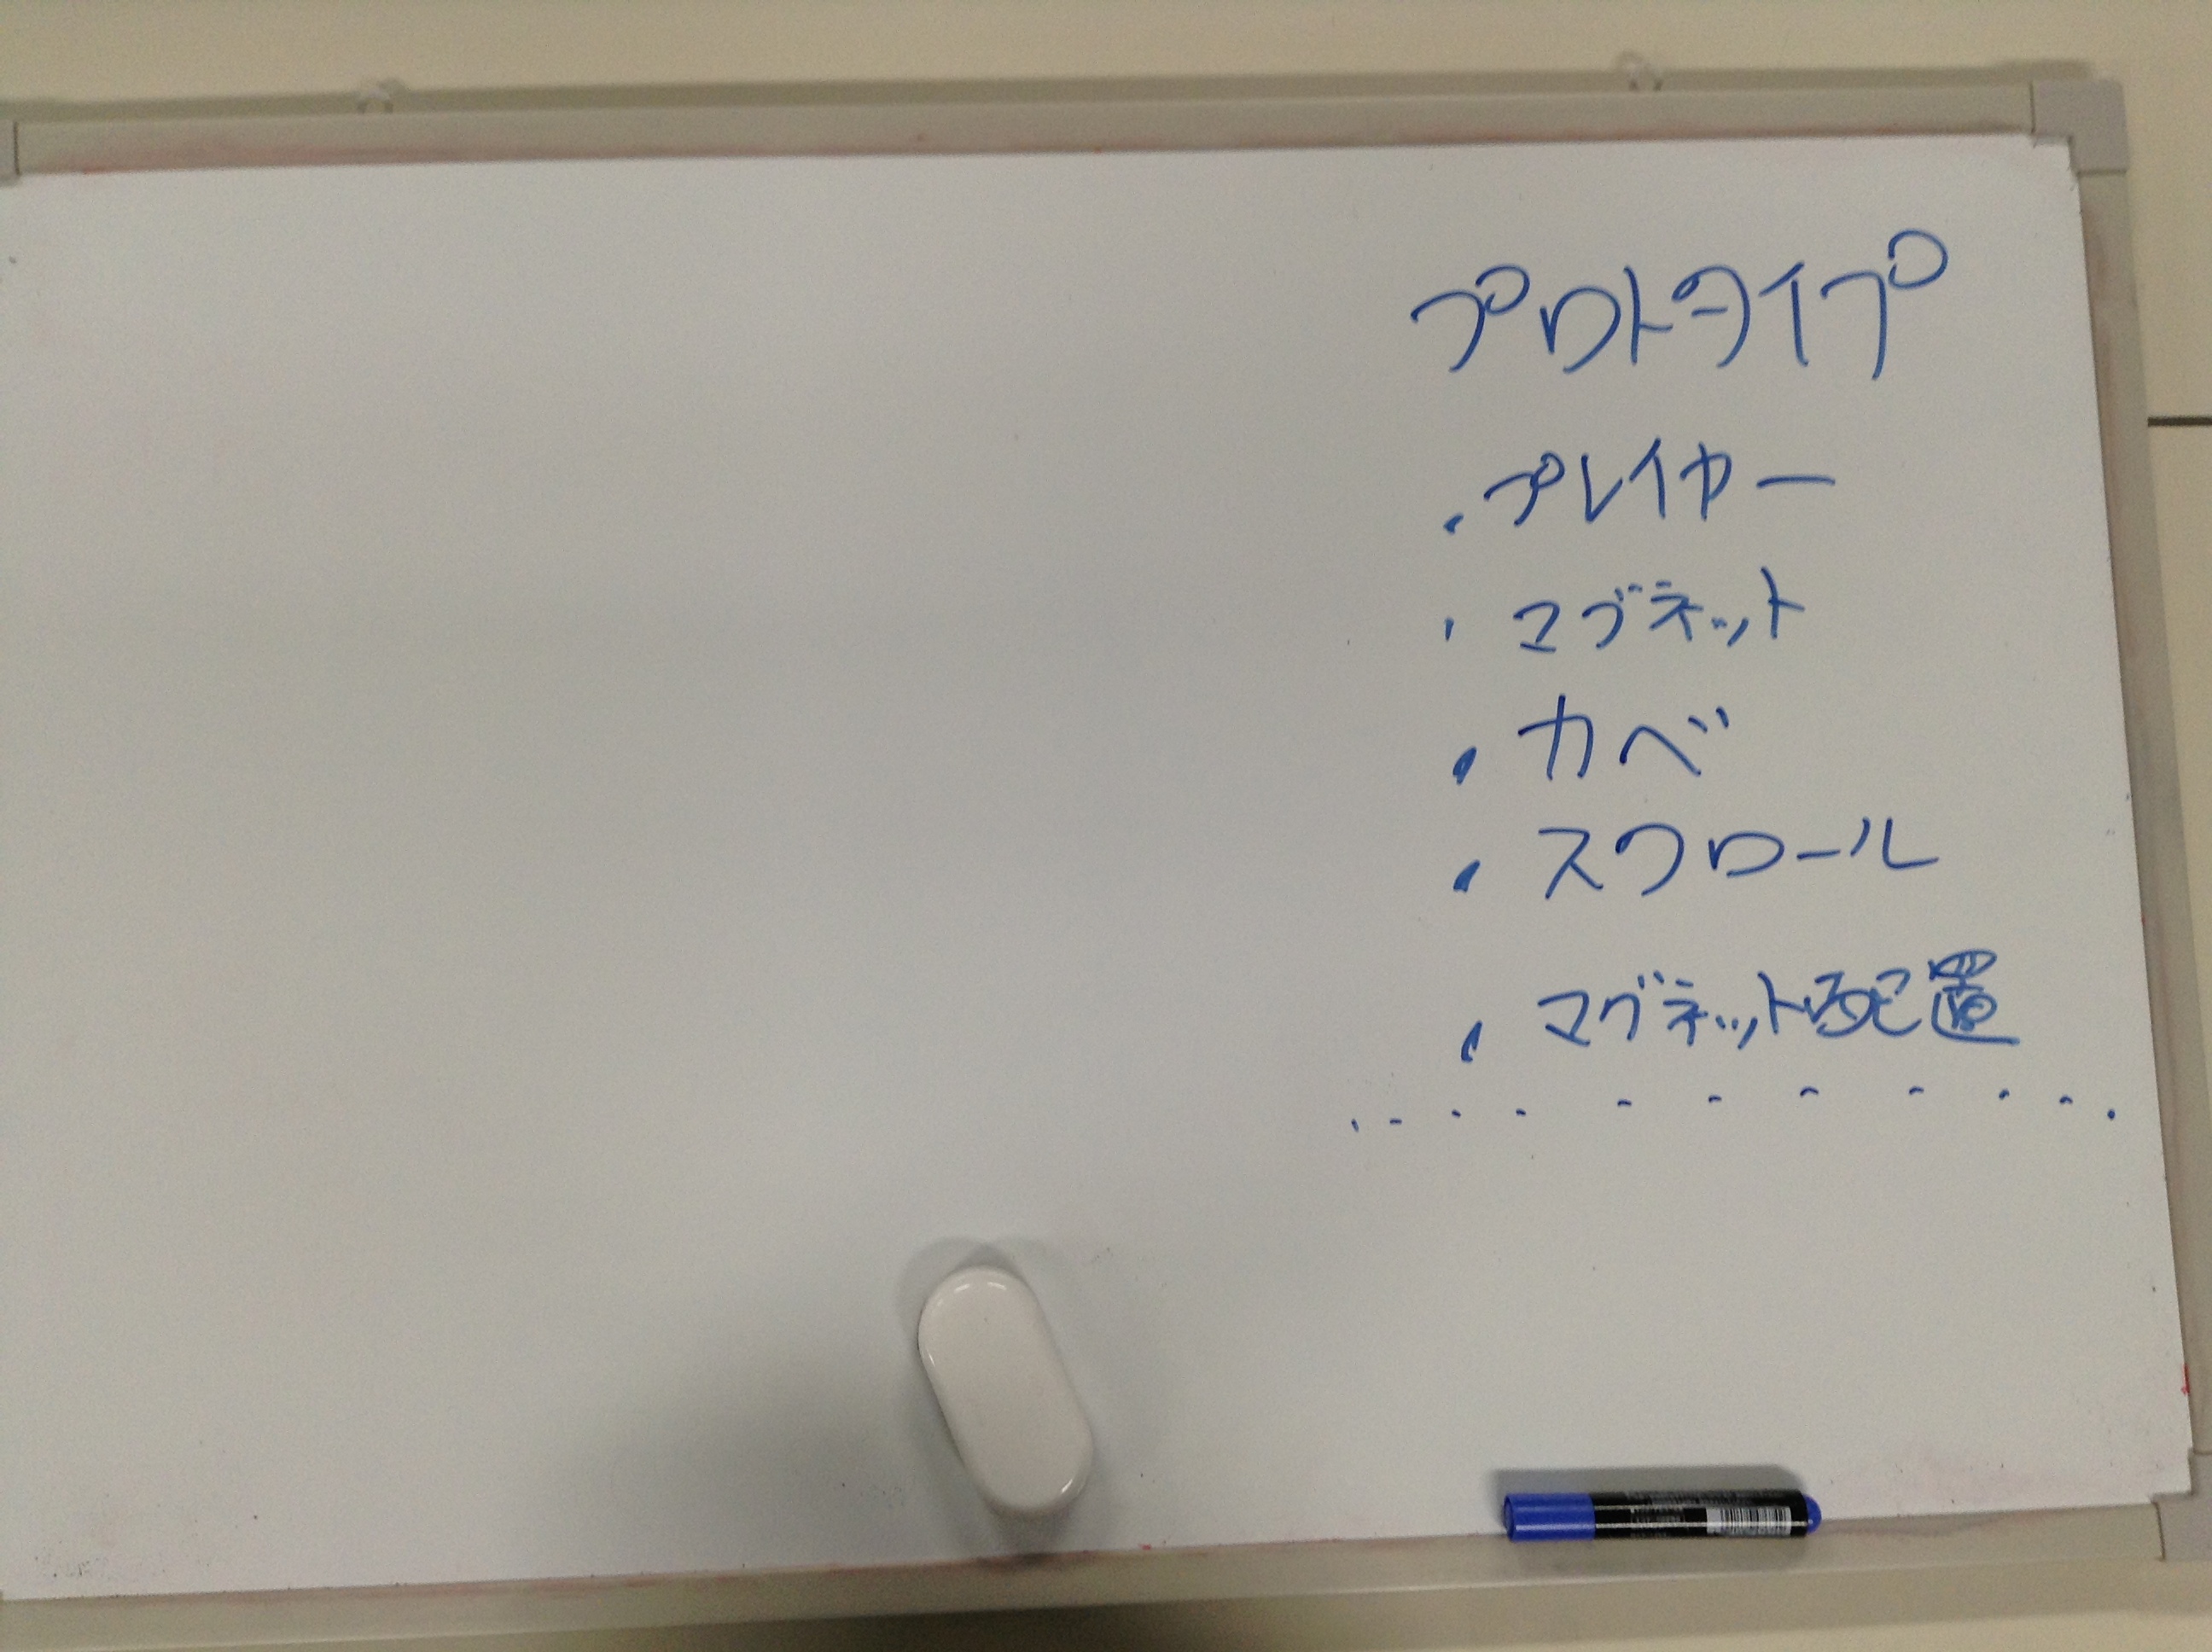 プロトタイプ
・プレイヤー
・マグネット
・カベ
・スクロール
・マグネット配置